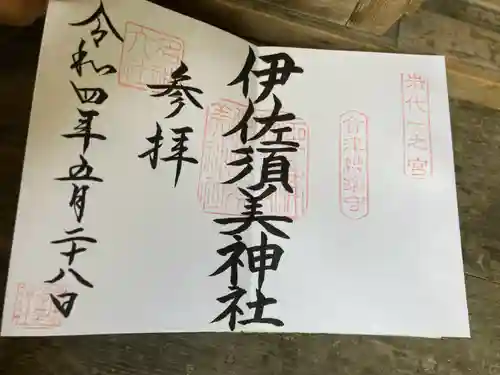 岩代一之宮
会津総鎮守
伊佐須美神社
参拝
令和四年五月二十八日